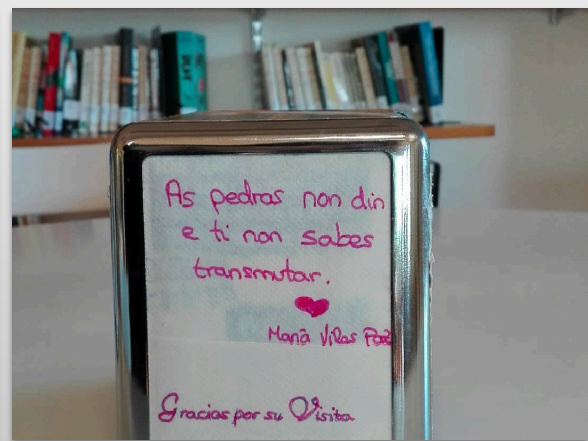 As pedras non din
e ti non sabes
transmutar.
María Vilas
Gracias por su Visita